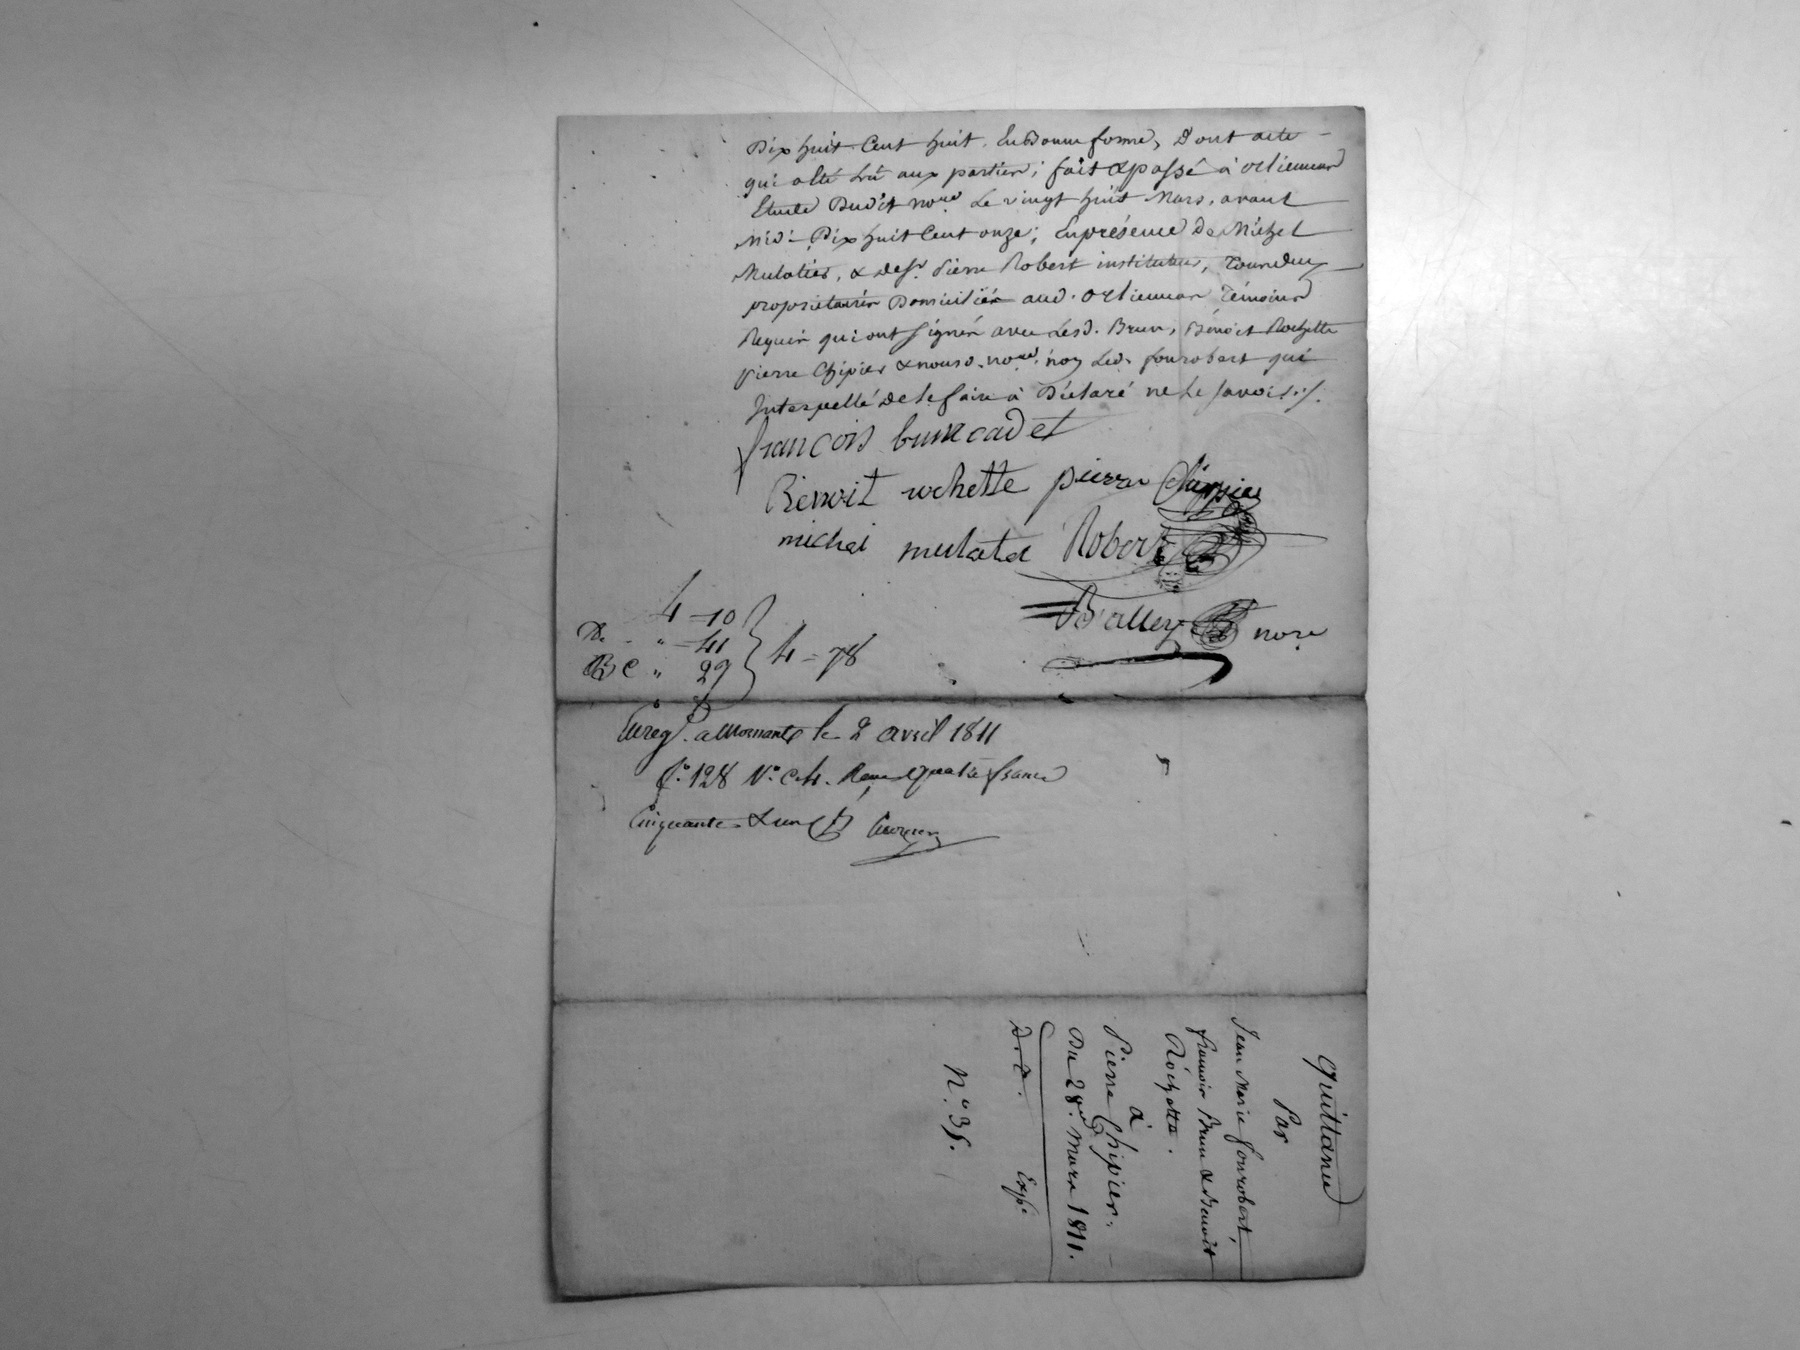 Dix huit Cent huit. En Bonne forme, Dont acte
qui a été Lu aux parties; fait & passé à Orliennas
Etude Dudit nore Le vingt huit Mars, avant
Midi Dix huit Cent onze; En présence De Michel
Mulatier, & De Sr. Pierre Robert instituteur, Tous deux
propriétaires Domiciliés aud. Orliennas Témoins
Requis qui ont Signés avec Lesd. Brun, Bénoit Rochette
Pierre Chipier & nousd. nore. non Led. fourobert qui
Interpellé de le faire à Déclaré ne Le Savoir ./.
françois brun cadet
Benoit rochette pierre Chippier
michel mulatie Robert
Balley nore
4 = 10
D. " = 41
B C " 29
4 = 78
Enregé. a Mornant le 2 avril 1811
fo. 128 Vo. C. 4. Reçu quatre francs
Cinquante & un
Quittance
Par
Jean Marie fourobert,
françois Brun & Benoit
Rochette.
à
Pierre Chipier.
Du 28. Mars 1811.
Exp.
No. 35.